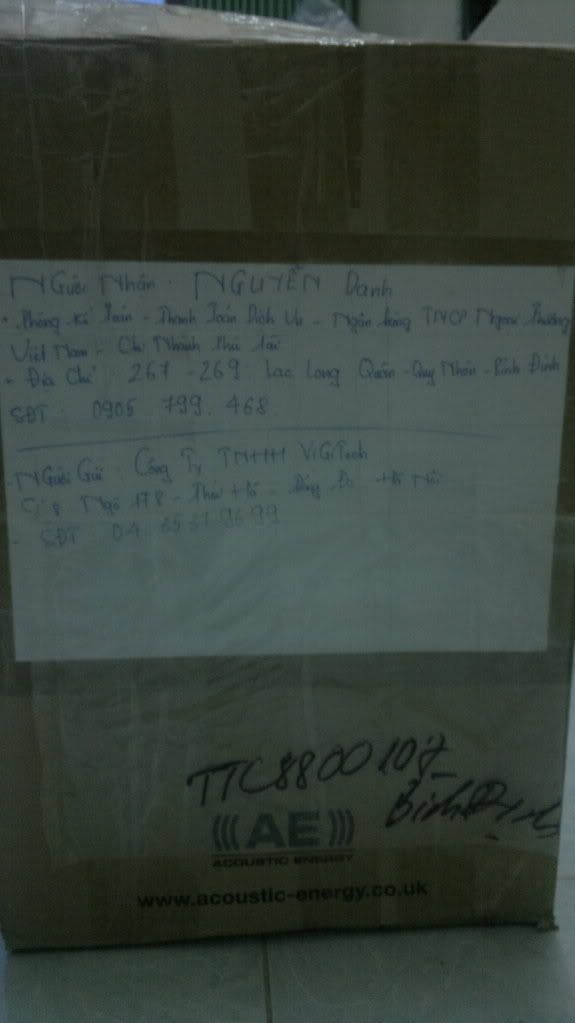 Người Nhận : NGUYỄN Danh
- Phòng Kế Toán - Thanh Toán Dịch Vụ - Ngân hàng TMCP Ngoại Thương
Việt Nam - Chi Nhánh Phú Tài
- Địa Chỉ : 267 - 269 Lạc Long Quân - Quy Nhơn - Bình Định
SĐT : 0905 799. 468
- Người Gửi : Công Ty TNHH ViGiTech
Ngõ 178 - Thái Hà - Đống Đa - Hà Nội
- SĐT 04
TTC8800107
Bình Định
AE
ACOUSTIC ENERGY
www.acoustic-energy.co.uk